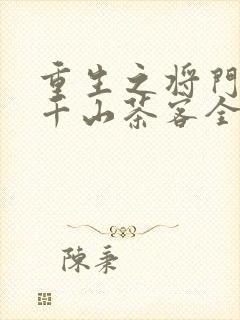 重生之将門
千山茶客全
陳秉